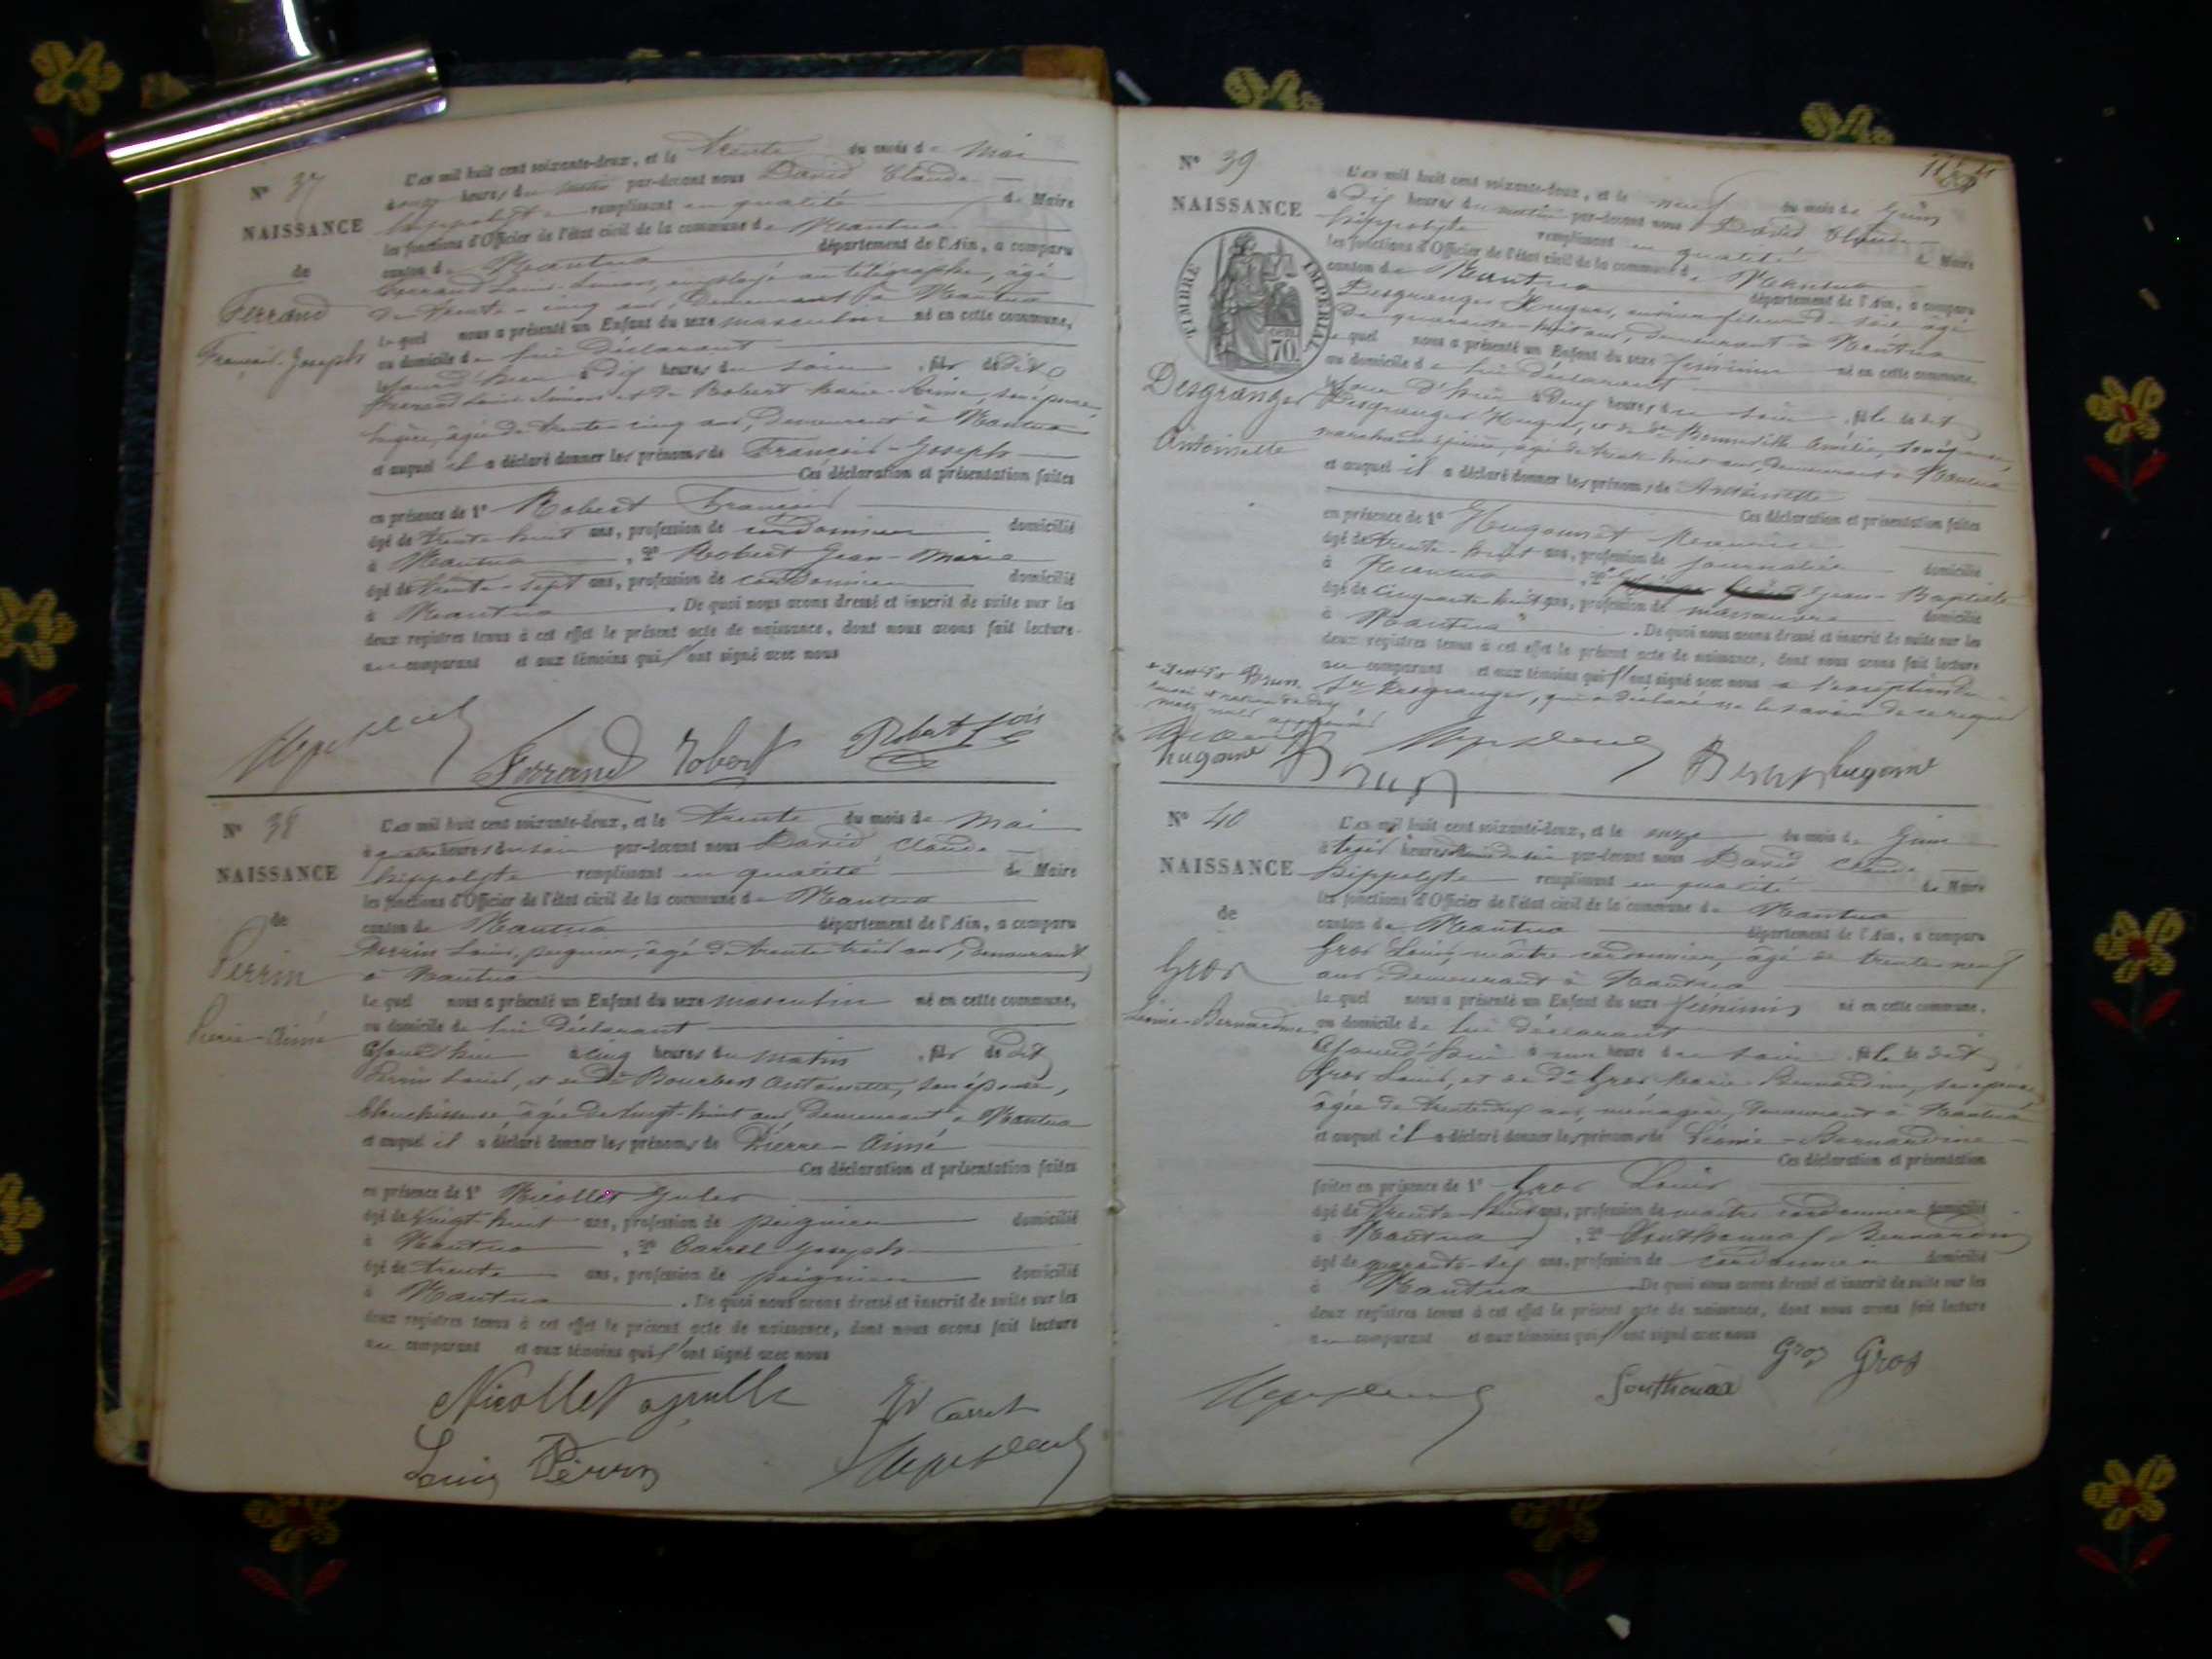 N° 37
NAISSANCE
de
Ferrand
François-Joseph
L'an mil huit cent soixante-deux, et le trente du mois de Mai
à onze heures du matin par-devant nous David Claude
hippolyte remplissant en qualité de Maire
les fonctions d'Officier de l'état civil de la commune de Nantua
canton de Nantua département de l'Ain, a comparu
Ferrand Louis-Simon, employé au télégraphe, âgé
de trente-cinq ans, Demeurant à Nantua
lequel nous a présenté un Enfant du sexe masculin né en cette commune,
au domicile de lui Déclarant
à dix heures du soir, fils de dit
Ferrand Louis Simon et de Robert Marie, son épouse,
âgée de trente-cinq ans, Demeurant à Nantua
et auquel il a déclaré donner les prénoms de François-Joseph
Ces déclaration et présentation faites
en présence de 1° Robert François
âgé de trente-huit ans, profession de cordonnier domicilié
à Nantua, 2° Robert Jean-Marie
âgé de trente-sept ans, profession de cordonnier domicilié
à Nantua. De quoi nous avons dressé et inscrit de suite sur les
deux registres tenus à cet effet le présent acte de naissance, dont nous avons fait lecture
au comparant et aux témoins qui l'ont signé avec nous
Ferrand Robert Robert fois
N° 38
NAISSANCE
de
Perrin
Pierre-Aimé
L'an mil huit cent soixante-deux, et le trente du mois de Mai
à quatre heures du soir par-devant nous David Claude
hippolyte remplissant en qualité de Maire
les fonctions d'Officier de l'état civil de la commune de Nantua
canton de Nantua département de l'Ain, a comparu
Perrin Louis, peignier, âgé de trente trois ans, Demeurant
à Nantua
lequel nous a présenté un Enfant du sexe masculin né en cette commune,
au domicile de lui Déclarant
Aujourd'hui à cinq heures du matin, fils de dit
Perrin Louis, et de de Bourbon Antoinette, son épouse,
blanchisseuse, âgée de vingt-huit ans Demeurant à Nantua
et auquel il a déclaré donner les prénoms de Pierre-Aimé
Ces déclaration et présentation faites
en présence de 1° Nicollet Jules
âgé de vingt-huit ans, profession de peignier domicilié
à Nantua, 2° Carrel Joseph
âgé de trente ans, profession de peignier domicilié
à Nantua. De quoi nous avons dressé et inscrit de suite sur les
deux registres tenus à cet effet le présent acte de naissance, dont nous avons fait lecture
au comparant et aux témoins qui l'ont signé avec nous
Nicollet
Louis Perrin
N° 39
NAISSANCE
TIMBRE IMPERIAL
70
Desgranges
Antoinette
L'an mil huit cent soixante-deux, et le neuf du mois de Juin
à dix heures du matin par-devant nous David Claude
hippolyte remplissant en qualité de Maire
les fonctions d'Officier de l'état civil de la commune de Nantua
canton de Nantua département de l'Ain, a comparu
Desgranges Hugues, ouvrier fileur de soie âgé
de quarante-huit ans, demeurant à Nantua
lequel nous a présenté un Enfant du sexe féminin né en cette commune,
au domicile de lui déclarant
à deux heures du soir, fille de dit
Desgranges Hugues, et de de Amélie, son épouse,
marchande épicière, âgée de trente-huit ans, demeurant à Nantua
et auquel il a déclaré donner les prénoms de Antoinette
Ces déclaration et présentation faites
en présence de 1° Hugonnet
âgé de trente-huit ans, profession de journalier domicilié
à Nantua, 2° Jean-Baptiste
âgé de cinquante huit ans, profession de manoeuvre domicilié
à Nantua. De quoi nous avons dressé et inscrit de suite sur les
deux registres tenus à cet effet le présent acte de naissance, dont nous avons fait lecture
au comparant et aux témoins qui l'ont signé avec nous à l'exception du
Sr Desgranges, qui a déclaré ne le savoir de ce requis
Brun
N° 40
NAISSANCE
de
Gros
Léonie-Bernardine
L'an mil huit cent soixante-deux, et le onze du mois de Juin
à trois heures du soir par-devant nous David Claude
hippolyte remplissant en qualité de Maire
les fonctions d'Officier de l'état civil de la commune de Nantua
canton de Nantua département de l'Ain, a comparu
Gros Louis, maître cordonnier, âgé de trente-neuf
ans Demeurant à Nantua
lequel nous a présenté un Enfant du sexe féminin né en cette commune,
au domicile de lui déclarant
Aujourd'hui à une heure du soir, fille de dit
Gros Louis, et de de Gros Marie-Bernardine, son épouse,
âgée de ans, ménagère, Demeurant à Nantua
et auquel il a déclaré donner les prénoms de Léonie-Bernardine
Ces déclaration et présentation
faites en présence de 1° Gros Louis
âgé de trente-huit ans, profession de maître cordonnier domicilié
à Nantua, 2° Bernardin
âgé de quarante-six ans, profession de cordonnier domicilié
à Nantua De quoi nous avons dressé et inscrit de suite sur les
deux registres tenus à cet effet le présent acte de naissance, dont nous avons fait lecture
au comparant et aux témoins qui l'ont signé avec nous
Gros Gros